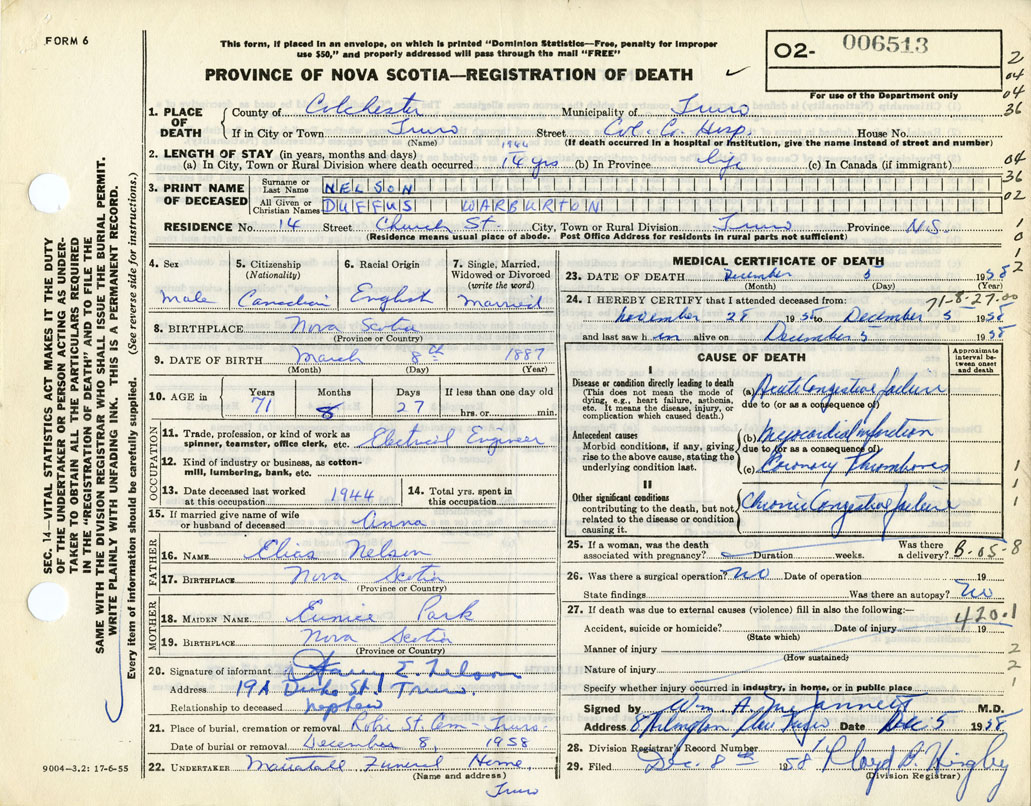 FORM 6
This form, if placed in an envelope, on which is printed "Dominion Statistics—Free, penalty for improper
use $50," and properly addressed will pass through the mail "FREE"
PROVINCE OF NOVA SCOTIA—REGISTRATION OF DEATH
02- 006513
For use of the Department only
2
04
04
36
04
36
02
1
0
1
2
1. PLACE OF DEATH { County of Colchester Municipality of Truro
If in City or Town Truro Street Col. Co. Hosp. House No.
(Name) (If death occurred in a hospital or institution, give the name instead of street and number)
2. LENGTH OF STAY (in years, months and days) 1944
(a) In City, Town or Rural Division where death occurred 14 yrs (b) In Province life (c) In Canada (if immigrant)
3. PRINT NAME OF DECEASED { Surname or Last Name NELSON
All Given or Christian Names DUFFUS WARBURTON
RESIDENCE No. 14 Street Church St. City, Town or Rural Division Truro Province N.S.
(Residence means usual place of abode. Post Office Address for residents in rural parts not sufficient)
SEC. 14—VITAL STATISTICS ACT MAKES IT THE DUTY
OF THE UNDERTAKER OR PERSON ACTING AS UNDER-
TAKER TO OBTAIN ALL THE PARTICULARS REQUIRED
IN THE "REGISTRATION OF DEATH" AND TO FILE THE
SAME WITH THE DIVISION REGISTRAR WHO SHALL ISSUE THE BURIAL PERMIT.
WRITE PLAINLY WITH UNFADING INK. THIS IS A PERMANENT RECORD.
Every item of information should be carefully supplied. (See reverse side for instructions.)
4. Sex
Male
5. Citizenship
(Nationality)
Canadian
6. Racial Origin
English
7. Single, Married,
Widowed or Divorced
(write the word)
Married
8. BIRTHPLACE Nova Scotia
(Province or Country)
9. DATE OF BIRTH March 8th 1887
(Month) (Day) (Year)
10. AGE in { Years Months Days If less than one day old
71 8 27 hrs. or min.
OCCUPATION
11. Trade, profession, or kind of work as
spinner, teamster, office clerk, etc. Electrical Engineer
12. Kind of industry or business, as cotton-
mill, lumbering, bank, etc.
13. Date deceased last worked
at this occupation 1944
14. Total yrs. spent in
this occupation
15. If married give name of wife
or husband of deceased Anna
FATHER
16. NAME Elias Nelson
17. BIRTHPLACE Nova Scotia
(Province or Country)
MOTHER
18. MAIDEN NAME Eunice Park
19. BIRTHPLACE Nova Scotia
(Province or Country)
20. Signature of informant Harry E. Nelson
Address 19A Duke St. Truro.
Relationship to deceased nephew
21. Place of burial, cremation or removal Robie St. Cem - Truro
Date of burial or removal December 8, 1958
22. UNDERTAKER Mattatall Funeral Home
(Name and address)
Truro
9004—3.2: 17-6-55
MEDICAL CERTIFICATE OF DEATH
23. DATE OF DEATH December 5 1958
(Month) (Day) (Year)
24. I HEREBY CERTIFY that I attended deceased from: 71-8-27.00
November 28 1956 to December 5 1958
and last saw h im alive on December 5 1958
CAUSE OF DEATH
Approximate
interval be-
tween onset
and death
I
Disease or condition directly leading to death
(This does not mean the mode of
dying, e.g., heart failure, asthenia,
etc. It means the disease, injury, or
complication which caused death.)
(a) Acute Congestive failure
due to (or as a consequence of)
Antecedent causes
Morbid conditions, if any, giving
rise to the above cause, stating the
underlying condition last.
(b) Myocardial Infarction
due to (or as a consequence of)
(c) Coronary Thrombosis
II
Other significant conditions
contributing to the death, but not
related to the disease or condition
causing it.
Chronic Congestive failure
1
1
1
25. If a woman, was the death
associated with pregnancy? Duration weeks. Was there
a delivery? B-05-8
26. Was there a surgical operation? no Date of operation 19
State findings Was there an autopsy? no
27. If death was due to external causes (violence) fill in also the following:— 420.1
Accident, suicide or homicide? Date of injury 19
(State which)
Manner of injury 2
(How sustained)
Nature of injury 2
1
Specify whether injury occurred in industry, in home, or in public place
Signed by Wm. A. M.D.
Address 8 Date Dec 5 1958
28. Division Registrar's Record Number
29. Filed Dec. 8th 1958 Lloyd
(Division Registrar)